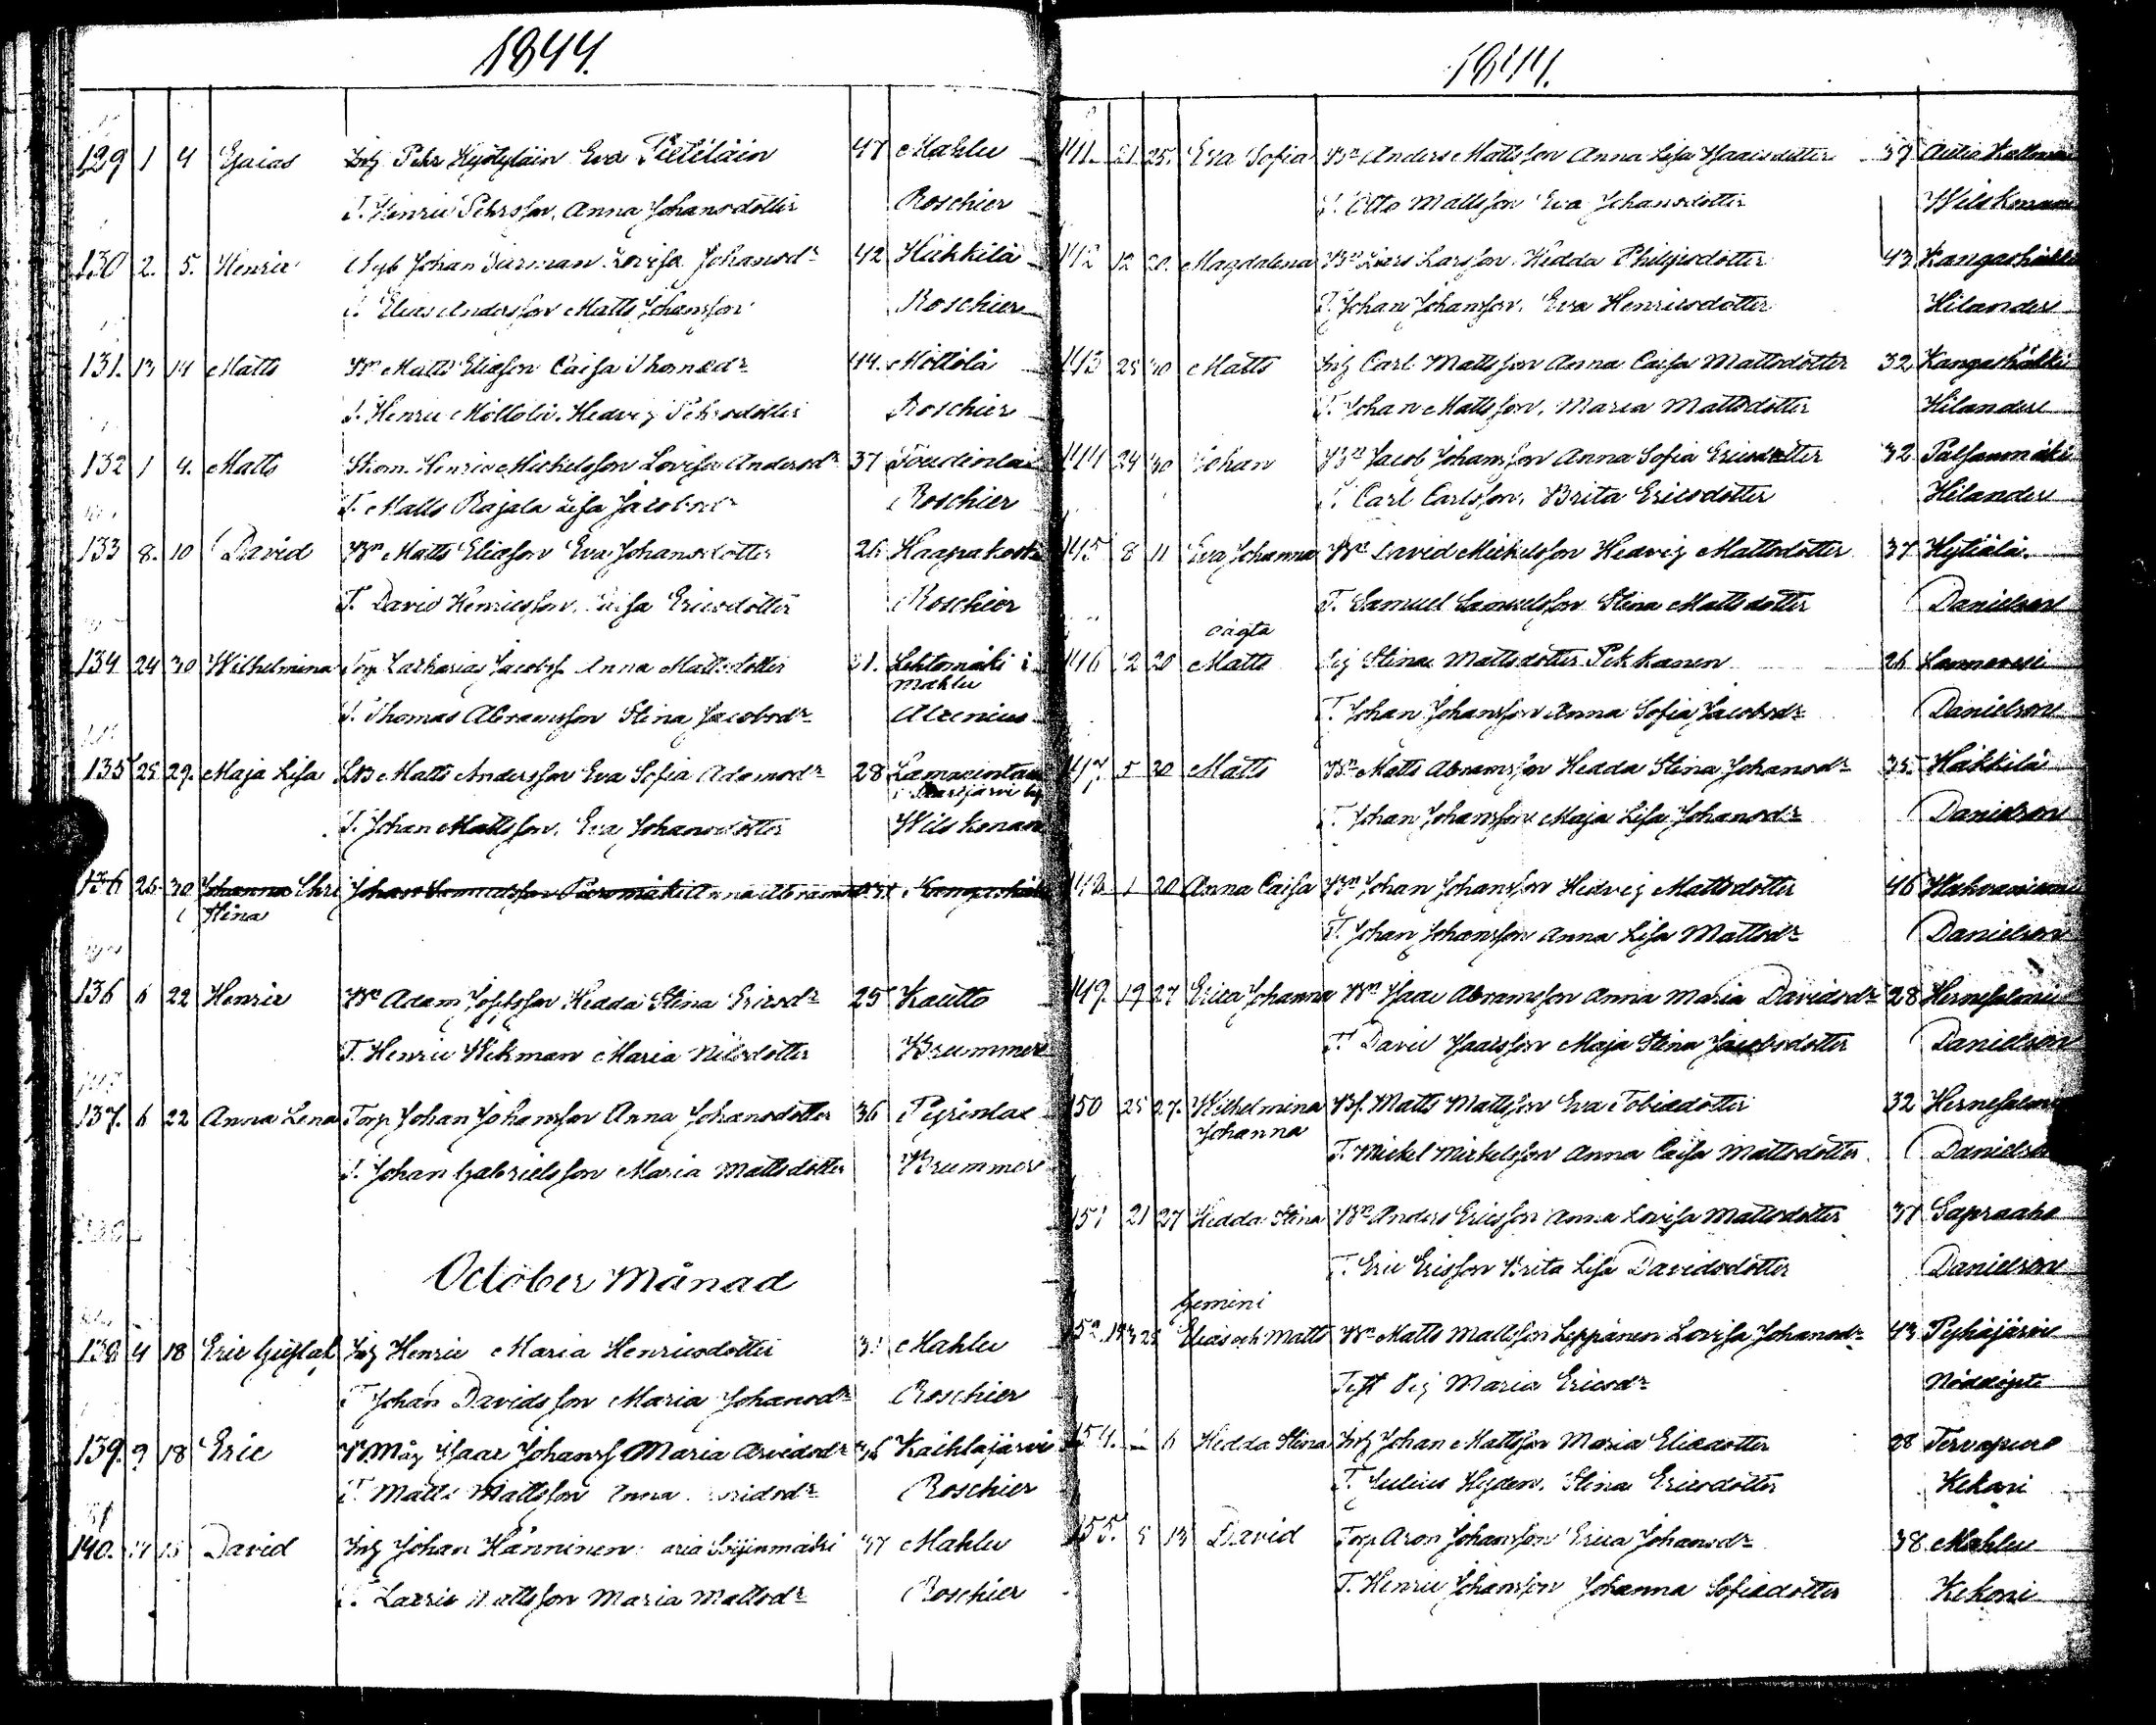 1844.
129 1 4 Esaias Inh Pehr Kyötyläin Eva Pietiläin 47 Mahlu
T. Henric Pehrsson, Anna Johansdotter Roschier
130 2. 5. Henric Johan Lovisa Johansdr 42 Häkkilä
T. Elias Andersson Matts Johansson Roschier
131. 13 14 Matts Bn Matts Eliasson Caisa Thomasdr 44. Möttölä
T. Henric Möttölä. Hedvig Pehrsdotter Roschier
132 1 4. Matts Skom. Henric Mickelsson Lovisa Andersdr 37
T. Matts Rajala Lisa Jacobsdr Roschier
133 8. 10 David Bn Matts Eliasson Eva Johansdotter 26 Haapakoski
T. David Henricsson, Caisa Ericsdotter Roschier
134 24 30 Wilhelmina Torp Zacharias Jacobss Anna Mattsdotter 31. Lehtomäki i
Mahlu
T. Thomas Abramsson Stina Jacobsdr Alcenius
135 25 29. Maja Lisa Matts Andersson Eva Sofia Adamsdr 28
T. Johan Mattsson, Eva Johansdotter Wilskman
136 26 30 Johanna Chri Johan Samuelsson Anna Abramsdr Kangashäkki
stina
136 6 22 Henric Bn Adam Josefsson Hedda Stina Ericsdr 25 Kautto
T. Henric Wikman Maria Nilsdotter Brummer
137. 6 22 Anna Lena Torp Johan Johansson Anna Johansdotter 36 Pyrinlax
T. Johan Gabrielsson Maria Mattsdotter Brummer
October Månad
138 4 18 Eric Gustaf Inh Henric Maria Henricsdotter Mahlu
T Johan Davidsson Maria Johansdr Roschier
139. 9 18 Eric B.Måg Isaac Johanss Maria Arvidsdr 36 Kaihlajärvi
T. Matts Mattsson Anna Roschier
140. 14 15 David Inh Johan Hänninen 37 Mahlu
T. Mattsson Maria Mattsdr Roschier
1844.
141. 21 25. Eva Sofia Bn Anders Mattsson Anna Lisa Isaacsdotter 37
T. Otto Mattsson Eva Johansdotter Wilskman
142 12 20. Magdalena Bn Larsson. Hedda Philipsdotter 43 Kangashäkki
T. Johan Johansson. Eva Henricsdotter Hilander
143 25 30 Matts Inh Carl Mattsson Anna Caisa Mattsdotter 32 Kangashäkki
T. Johan Mattsson, Maria Mattsdotter Hilander
144 24 30 Johan Bn Jacob Johansson Anna Sofia Ericsdotter 32
T. Carl Carlsson, Brita Ericsdotter Hilander
145 8 11 Eva Johanna Bn David Mickelsson Hedvig Mattsdotter 37 Hytiälä
T. Samuel Samuelsson Stina Mattsdotter Danielson
oägta
146 12 20 Matts Pig Stina Mattsdotter Pekkanen 26 Lannevesi
T. Johan Johansson Anna Sofia Jacobsdr Danielson
147. 5 20 Matts Bn Matts Abramsson Hedda Stina Johansdr 35. Häkkilä
T. Johan Johansson Maja Lisa Johansdr Danielson
148. 1 20 Anna Caisa Bn Johan Johansson Hedvig Mattsdotter 46
T. Johan Johansson Anna Lisa Mattsdr Danielson
149. 19 27 Erica Johanna Bn Isaac Abramsson Anna Maria Davidsdr 28
T. David Isacsson Maja Stina Jacobsdotter Danielson
150 25 27. Wilhelmina Matts Mattsson Eva Tobiadotter 32
Johanna
T. Mickel Mickelsson Anna Caisa Mattsdotter Danielson
151 21 27 Hedda Stina Bn Anders Ericsson Anna Lovisa Mattsdotter 37 Sapraaho
T. Eric Ericsson Brita Lisa Davidsdotter Danielson
Gemini
Elias och Matts Bn Matts Mattsson Leppänen Lovisa Johansdr 43 Pyhäjärvi
Test Pig Maria Ericsdr Nöddöpte
154. 6 Hedda Stina Inh Johan Mattsson Maria Eliadotter 28 Tervapuro
T. Julius Hyden, Stina Ericsdotter Kekoni
155. 5 13 David Torp Aron Johansson Erica Johansdr 38 Mahlu
T. Henric Johansson Johanna Sofiadotter Kekoni